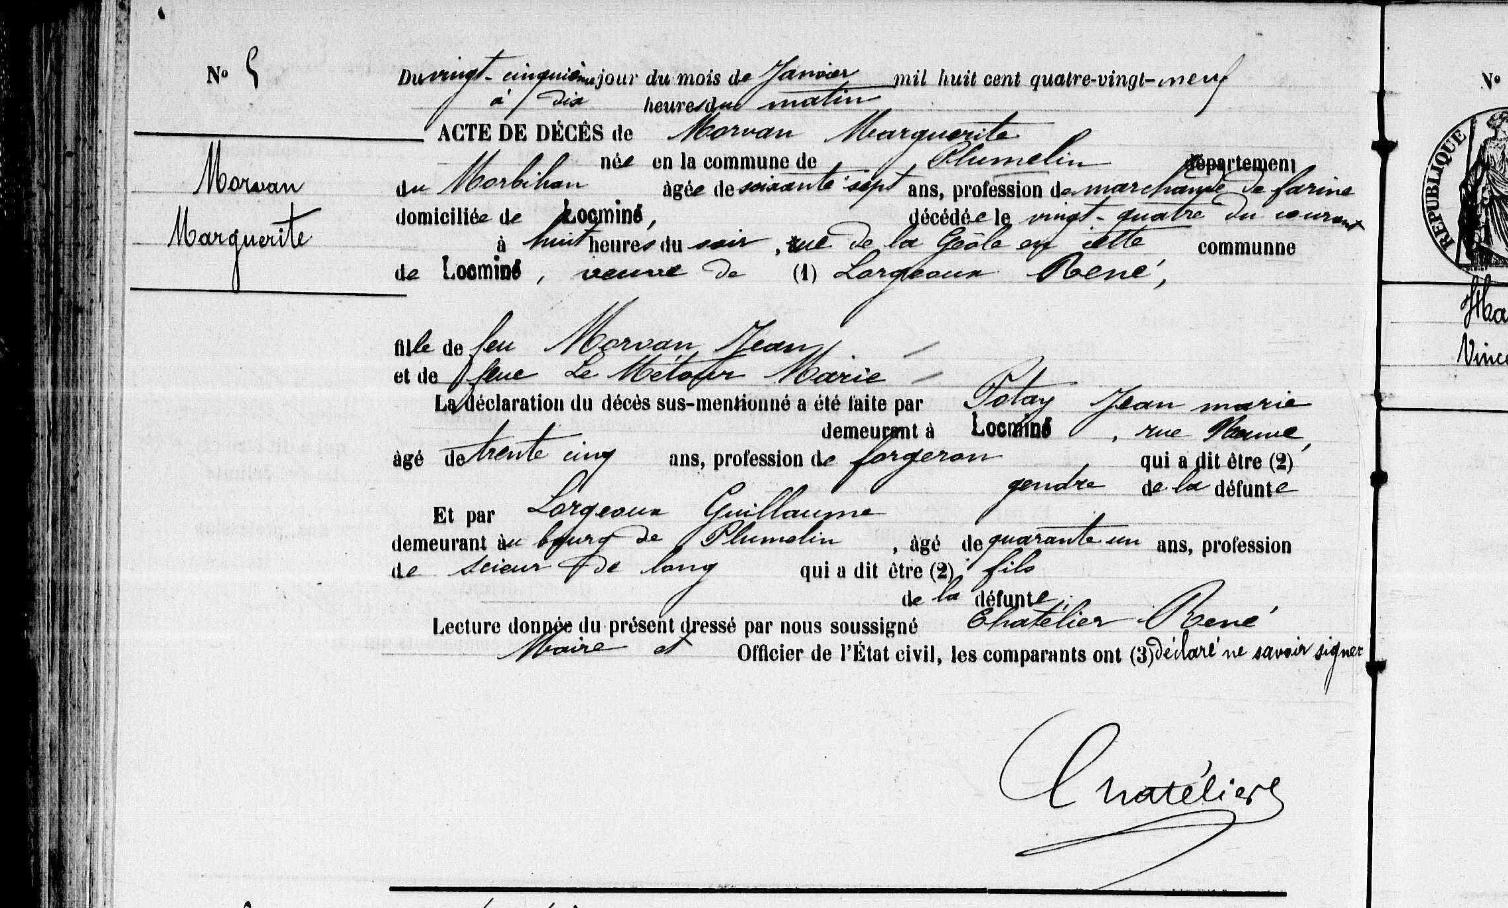 N° 5
Du vingt-cinquième jour du mois de Janvier mil huit cent quatre-vingt-neuf
à dix heures du matin
ACTE DE DÉCÈS de Morvan Marguerite
née en la commune de Plumelin département
du Morbihan âgée de soixante-sept ans, profession de marchande de farine
domiciliée de Locminé, décédée le vingt-quatre du courant
à huit heures du soir, rue de la Geôle en cette communne
de Locminé, veuve de (1) Lorgeoux René,
Morvan
Marguerite
fille de feu Morvan Jean
et de feue Le Métour Marie
La déclaration du décès sus-mentionné a été faite par Potay Jean marie
demeurant à Locminé, rue Neuve,
âgé de trente cinq ans, profession de forgeron qui a dit être (2)
gendre de la défunte
Et par Lorgeoux Guillaume
demeurant au bourg de Plumelin, âgé de quarante un ans, profession
de scieur de long qui a dit être (2) fils
de la défunte.
Lecture donnée du présent dressé par nous soussigné Chatélier René
Maire et Officier de l'État civil, les comparants ont (3) déclaré ne savoir signer
Chatélier
N°
RÉPUBLIQUE
Ha
Vince